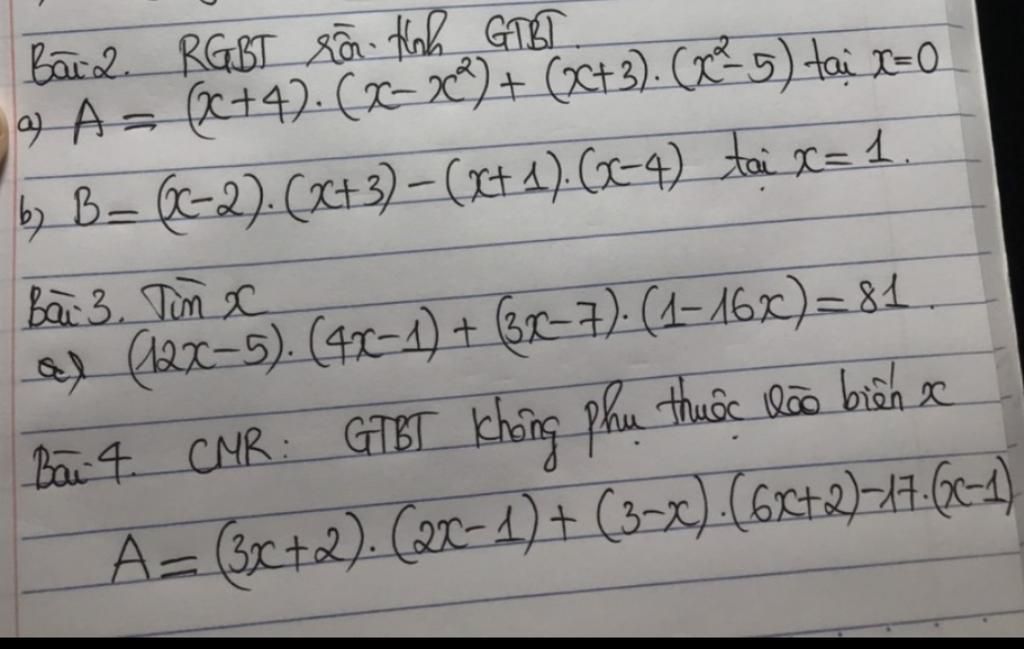 Bài 2. RGBT rồi tính GTBT.
a) A = (x+4).(x-x²)+(x+3).(x²-5) tại x=0
b) B = (x-2).(x+3)-(x+1).(x-4) tại x=1.
Bài 3. Tìm x
a) (12x-5).(4x-1)+(3x-7).(1-16x)=81.
Bài 4. CMR: GTBT không phụ thuộc vào biến x
A = (3x+2).(2x-1)+(3-x).(6x+2)-17.(x-1)